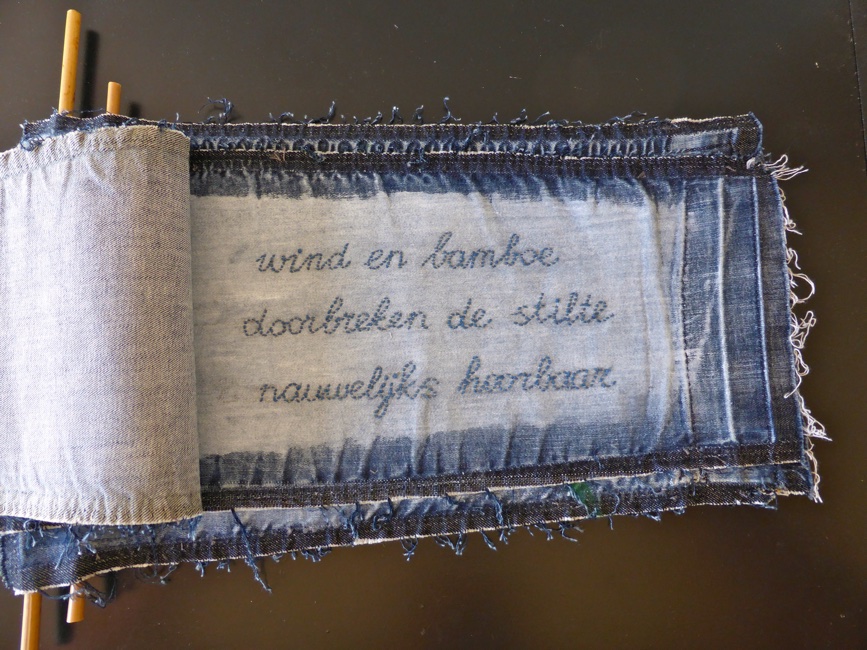 wind en bamboe
doorbreken de stilte
nauwelijks hoorbaar